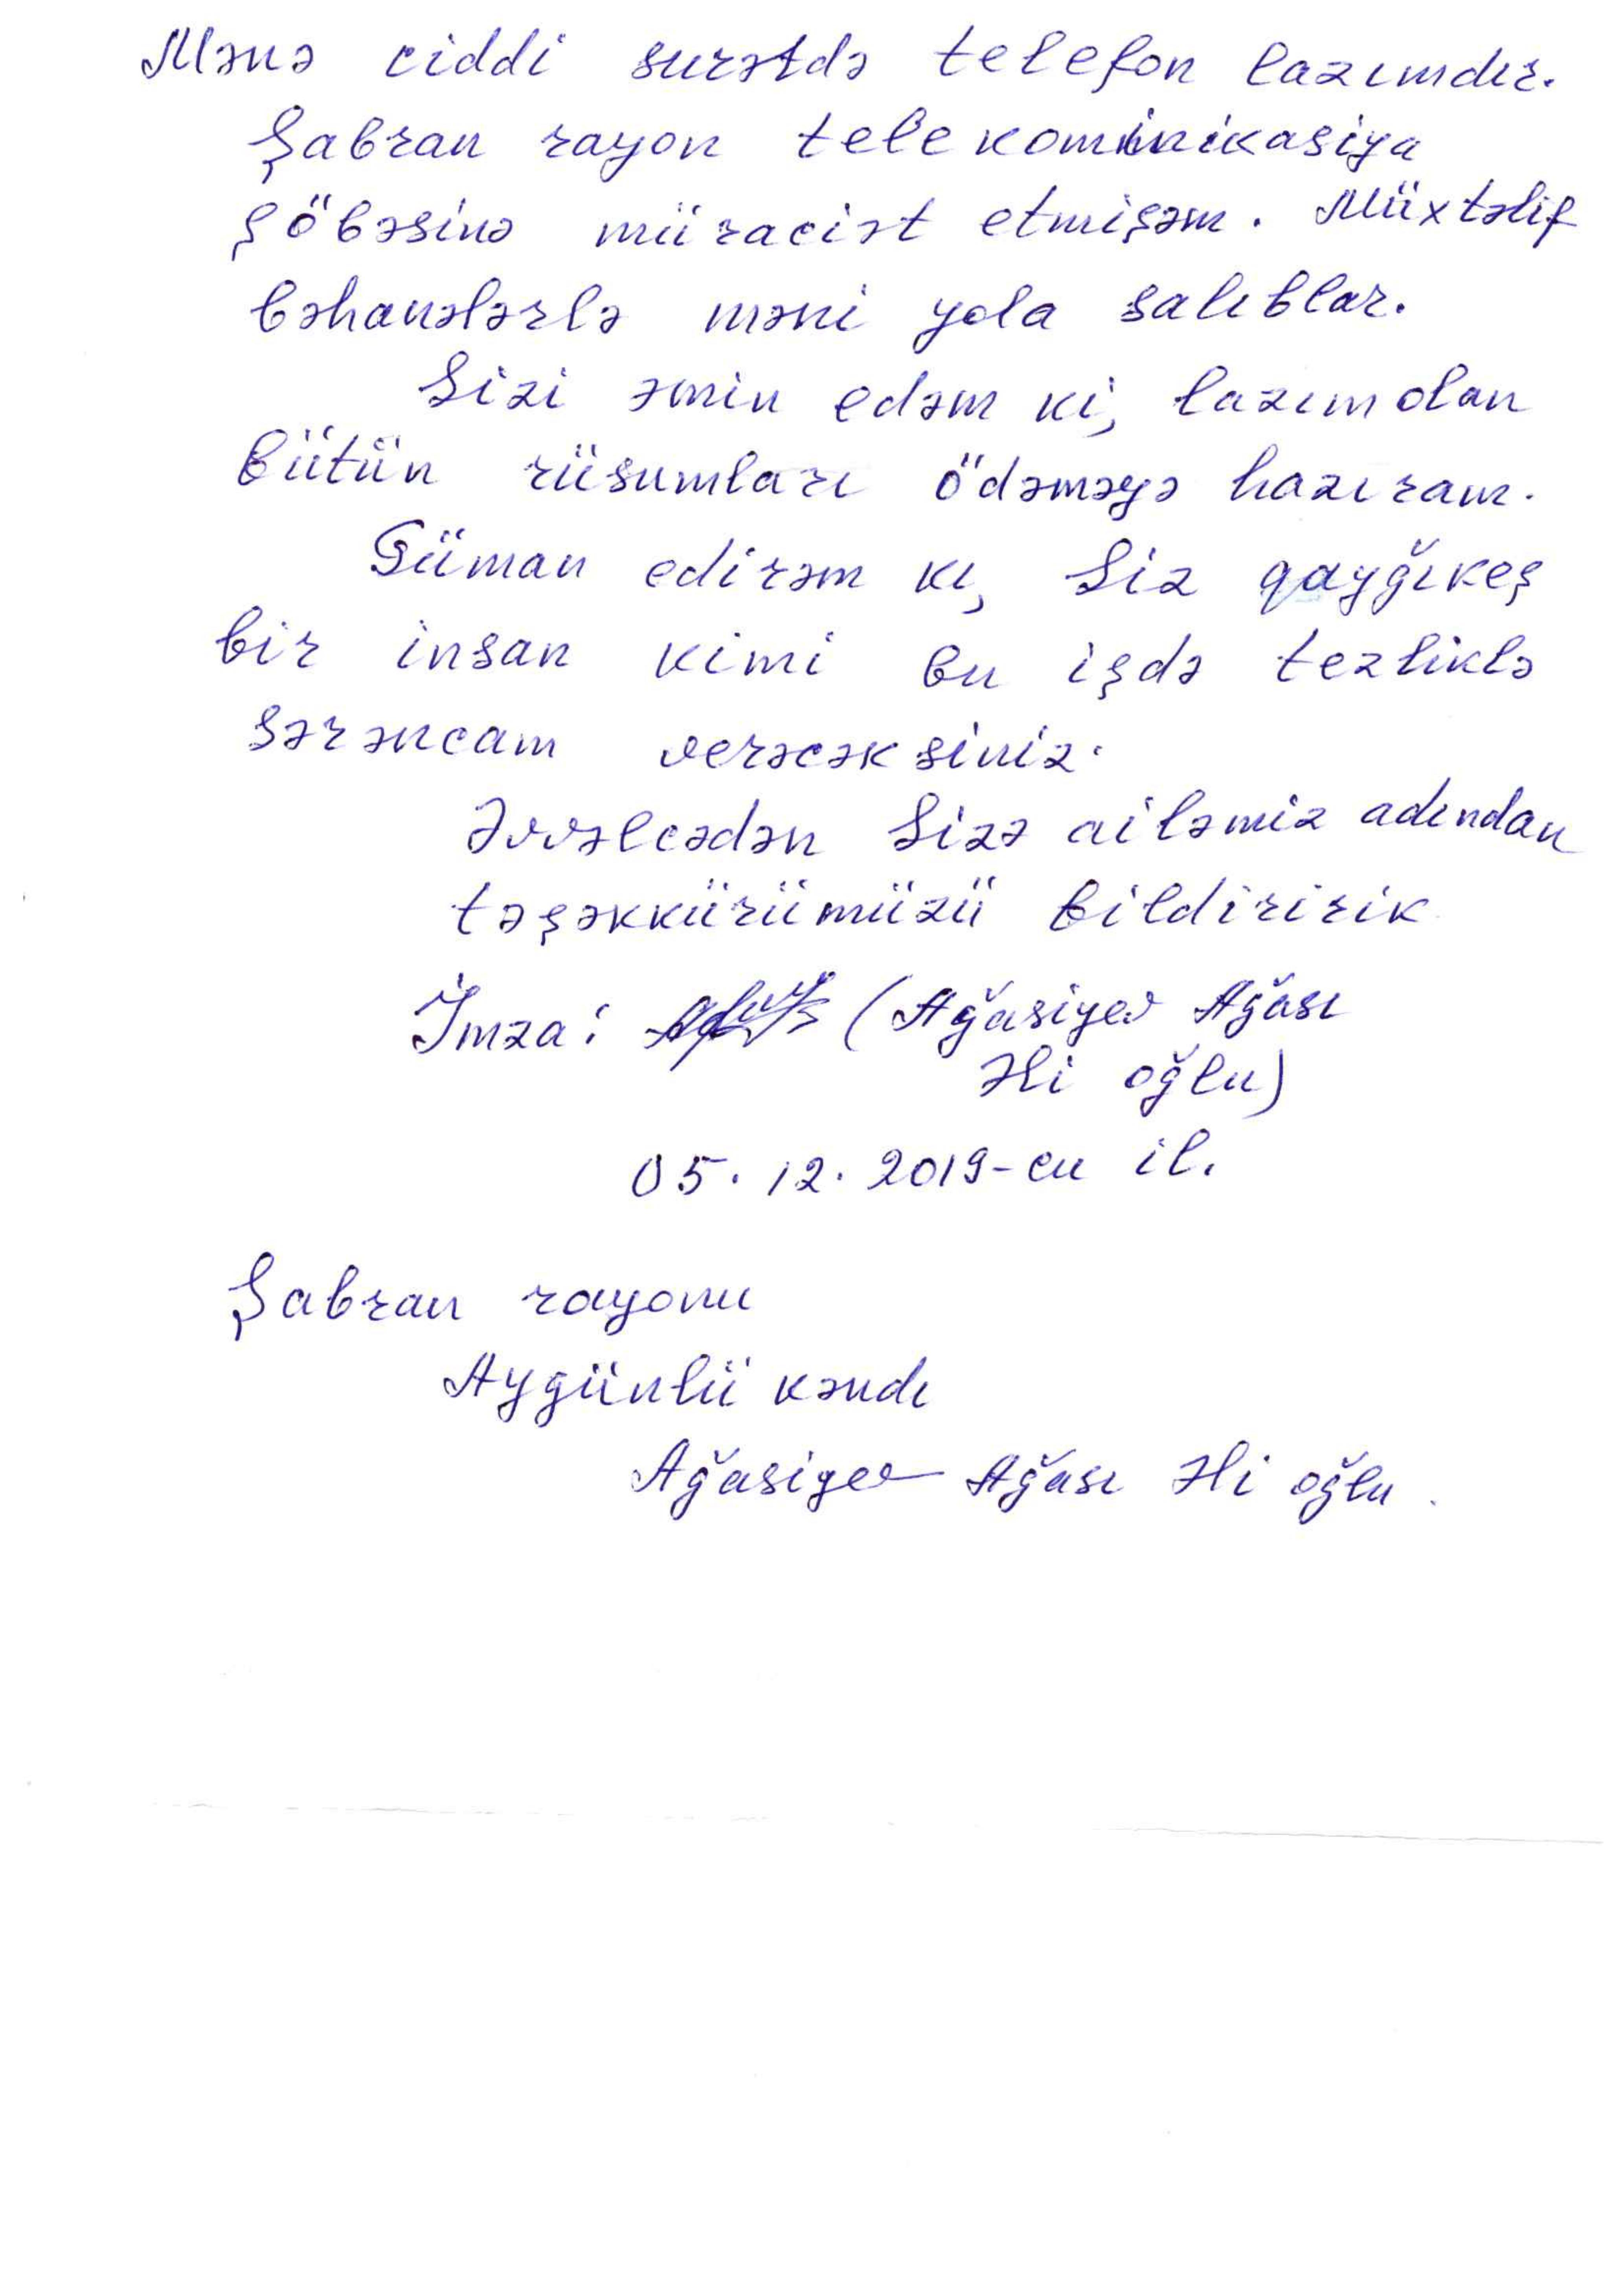 Mənə ciddi surətdə telefon lazımdır.
Şabran rayon telekominikasiya
şöbəsinə müraciət etmişəm. Müxtəlif
bəhanələrlə məni yola salıblar.
Sizi əmin edəm ki, lazım olan
bütün rüsumları ödəməyə hazıram.
Güman edirəm kı, Siz qayğıkeş
bir insan kimi bu işdə tezliklə
sərəncam verəcəksiniz.
Əvvəlcədən Sizə ailəmiz adından
təşəkkürümüzü bildiririk
İmza: (Ağasiyev Ağası
Əli oğlu)
05.12.2019-cu il.
Şabran rayonu
Aygünlü kəndı
Ağasiyev Ağası Əli oğlu.